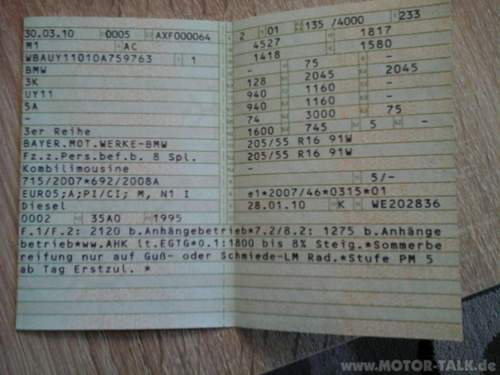 30.03.10 0005 AXF000064
M1 AC
WBAUY11010A759763 1
BMW
3K
UY11
5A
-
3er Reihe
BAYER.MOT.WERKE-BMW
Fz.z.Pers.bef.b. 8 Spl.
Kombilimousine
715/2007*692/2008A
EURO5;A;PI/CI; M, N1 I
Diesel
0002 35AQ 1995
2 01 135 /4000 233
4527 1817
1418 1580
- 75 -
128 2045 2045
940 1160 -
940 1160 -
74 3000 75
1600 745 5 -
205/55 R16 91W
205/55 R16 91W
-
- 5/-
e1*2007/46*0315*01
28.01.10 K WE202836
F.1/F.2: 2120 b.Anhängebetrieb*7.2/8.2: 1275 b.Anhänge
betrieb*ww.AHK lt.EGTG*0.1:1800 bis 8% Steig.*Sommerbe
reifung nur auf Guß- oder Schmiede-LM Rad.*Stufe PM 5
ab Tag Erstzul. *
www.MOTOR-TALK.de